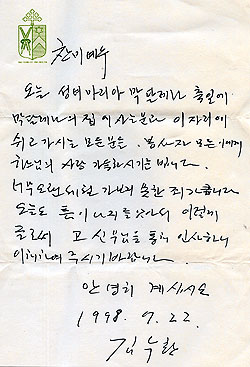 찬미예수
오늘 성녀 마리아 막달레나 축일에
막달레나의 집 이사분과 이 자리에
쉬고 가시는 모든 분, 봉사자 모두에게
하느님의 사랑 가득하시기를 빕니다.
가보지 못한 죄가 큽니다
오늘도 틈이 나지를 않아서 이렇게
글로써 고 신부님을 통해 인사하니
이해하여 주시기 바랍니다.
안녕히 계십시오
1998. 7. 22.
김수환